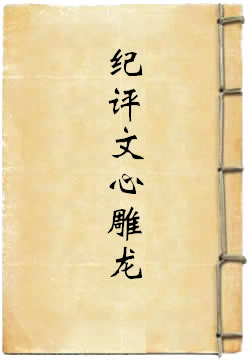 纪评文心雕龙